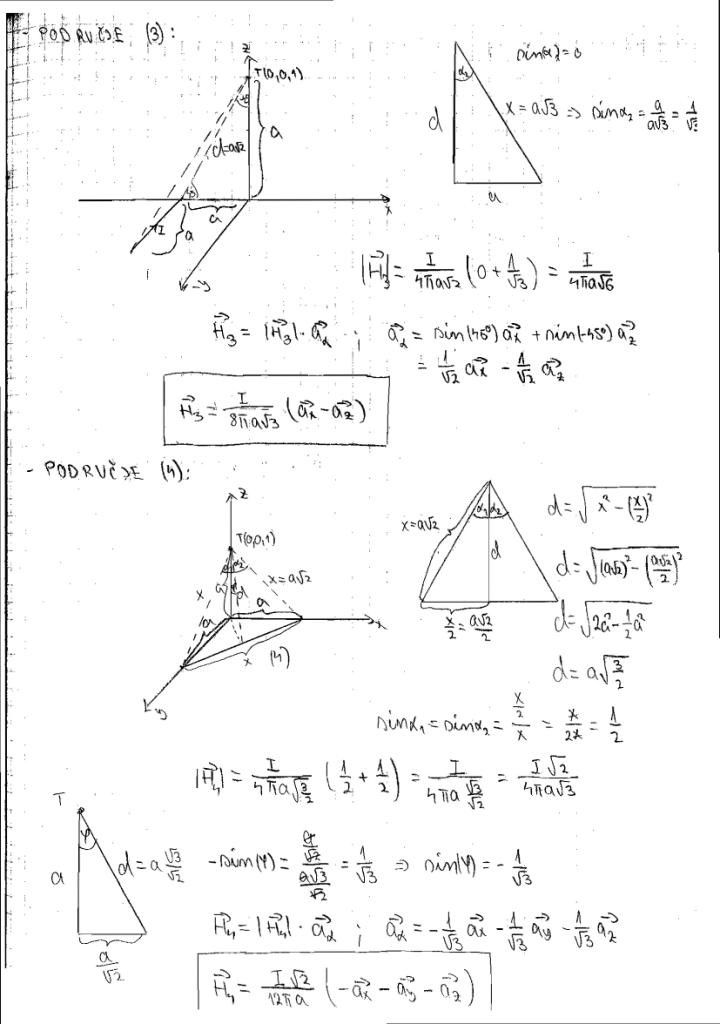 - PODRUČJE (3):
z
T(0,0,1)
45°
d=a√2
a
45°
a
x
I
a
-y
sin(α₁)=0
α₂
d
x = a√3 ⇒ sinα₂ = a/(a√3) = 1/√3
a
|H⃗₃| = I/(4πa√2) (0 + 1/√3) = I/(4πa√6)
H⃗₃ = |H⃗₃| · a⃗α ; a⃗α = sin(45°) a⃗x + sin(-45°) a⃗z
= 1/√2 a⃗x - 1/√2 a⃗z
H⃗₃ = I/(8πa√3) (a⃗x - a⃗z)
- PODRUČJE (4):
z
T(0,0,1)
α₂
x
x=a√2
a
d
a
a
x
x (4)
y
x=a√2
α₁ α₂
d
x/2 = a√2/2
d = √(x² - (x/2)²)
d = √((a√2)² - (a√2/2)²)
d = √(2a² - 1/2 a²)
d = a√(3/2)
sinα₁ = sinα₂ = (x/2)/x = x/2x = 1/2
|H⃗₄| = I/(4πa√(3/2)) (1/2 + 1/2) = I/(4πa √3/√2) = I√2/(4πa√3)
T
φ
a
d = a √3/√2
a/√2
-sin(φ) = (a/√2)/(a√3/√2) = 1/√3 ⇒ sin(φ) = - 1/√3
H⃗₄ = |H⃗₄| · a⃗α ; a⃗α = - 1/√3 a⃗x - 1/√3 a⃗y - 1/√3 a⃗z
H⃗₄ = I√2/(12πa) (-a⃗x - a⃗y - a⃗z)